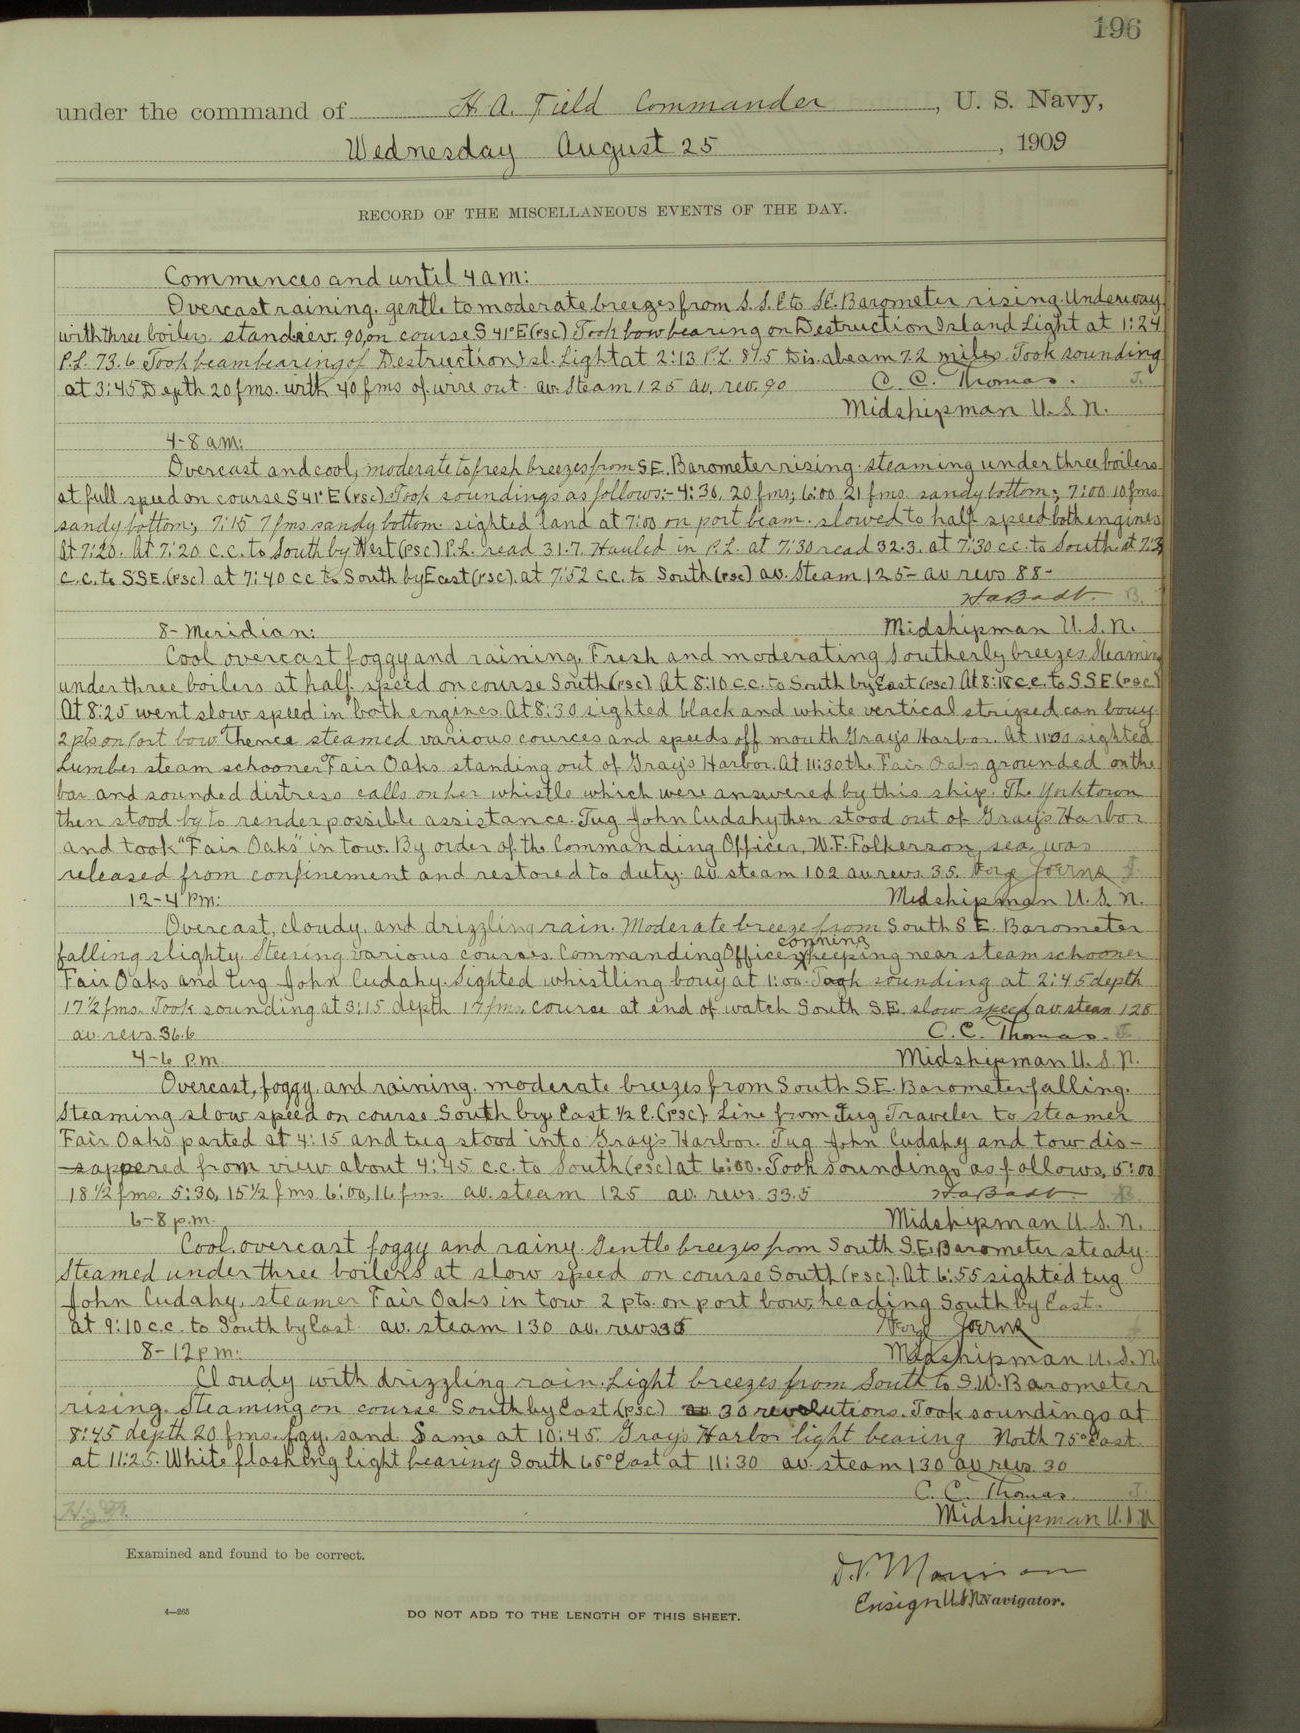 196
under the command of H. A. Field Commander, U. S. Navy,
Wednesday August 25, 1909
RECORD OF THE MISCELLANEOUS EVENTS OF THE DAY.
Commences and until 4 am:
Overcast raining. gentle to moderate breezes from S.S.E to SE. Barometer rising. Underway
with three boilers. standrev. 90, on course S 41° E (PSC) Took bow bearing on Destruction Island Light at 1:24
P.L. 73.6 Took beam bearing of Destruction Isl. Light at 2:13 P.L. 81.5 Dis. abeam 7.2 miles. Took sounding
at 3:45 Depth 20 fms. with 40 fms of wire out. av. Steam 125 av. rev. 90 C. C. Thomas. J.
Midshipman U.S.N.
4-8 am:
Overcast and cool, moderate to fresh breezes from SE. Barometer rising. steaming under three boilers
at full speed on course S 41° E (PSC). Took soundings as follows:- 4:30, 20 fms; 6:00 21 fms. sandy bottom; 7:00 10 fms
sandy bottom; 7:15 7 fms sandy bottom. sighted land at 7:00 on port beam. slowed to half speed both engines
at 7:20. At 7:20 c.c. to South by West (PSC) P.L. read 31.7. Hauled in P.L. at 7:30 read 32.3. at 7:30 c.c. to South. at 7:3
c.c. to SSE. (PSC) at 7:40 cc to South by East (PSC). at 7:52 c.c. to South (PSC) av. Steam 125- av revs 88-
HaBadt. B.
8- Meridian: Midshipman U.S.N.
Cool overcast foggy and raining. Fresh and moderating Southerly breezes. Steaming
under three boilers at half speed on course South (PSC) At 8:10 c.c. to South by East (PSC) At 8:18 c.c. to SSE (PSC)
At 8:25 went slow speed in both engines. At 8:30 sighted black and white vertical striped can bouy
2 pts on Port bow thence steamed various cources and speeds off mouth Gray's Harbor. At 11:00 sighted
Lumber steam schooner Fair Oaks standing out of Gray's Harbor. At 11:30 the Fair Oaks grounded on the
bar and sounded distress calls on her whistle which were answered by this ship. The Yorktown
then stood by to render possible assistance. Tug John Cudahy then stood out of Gray's Harbor
and took "Fair Oaks" in tow. By order of the Commanding Officer, W.F. Folkerson, sea. was
released from confinement and restored to duty. av steam 102 av revs 35. Joerns J.
12-4 Pm: Midshipman U.S.N.
Overcast, cloudy, and drizzling rain. Moderate breeze from South S.E. Barometer
falling slighty. Steering various courses. Commanding Officer conning keeping near steam schooner
Fair Oaks and tug John Cudahy. Sighted whistling bouy at 1:00. Took sounding at 2:45 depth
17 1/2 fms. Took sounding at 3:15 depth 17 fms. course at end of watch South S.E. slow speed av. steam 128
av. revs. 36.6 C. C. Thomas. J.
4-6 p.m. Midshipman U.S.N.
Overcast, foggy, and raining. moderate breezes from South S.E. Barometer falling.
Steaming slow speed on course South by East 1/2 E. (PSC). Line from Tug Traveler to steamer
Fair Oaks parted at 4:15 and tug stood into Gray's Harbor. Tug John Cudahy and tow dis-
-sappered from view about 4:45 c.c. to South (PSC) at 6:00. Took soundings as follows, 5:00
18 1/2 fms. 5:30, 15 1/2 fms. 6:00, 16 fms. av. steam 125 av. revs. 33.5 HaBadt B.
6-8 p.m. Midshipman U.S.N.
Cool, overcast foggy and rainy. Gentle breezes from South S.E. Barometer steady.
Steamed under three boilers at slow speed on course South (PSC). At 6:55 sighted tug
John Cudahy, steamer Fair Oaks in tow 2 pts. on port bow, heading South by East.
at 9:10 c.c. to South by East av. steam 130 av. revs 35 Joerns
8-12 pm: Midshipman U.S.N.
Cloudy with drizzling rain. Light breezes from South to S.W. Barometer
rising. Steaming on course South by East (PSC) 30 revolutions. Took soundings at
8:45 depth 20 fms. fgy. sand. Same at 10:45. Gray's Harbor light bearing North 75° East
at 11:25. White flashing light bearing South 65° East at 11:30 av. steam 130 av revs. 30
C. C. Thomas. J.
Midshipman U.S.N
Examined and found to be correct.
Ensign U.S.N Navigator.
4—265
DO NOT ADD TO THE LENGTH OF THIS SHEET.